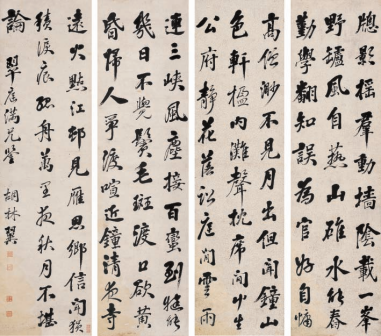 牕影搖羣木牆陰載一峯
野罏風自爇山碓水能舂
勤學翻知誤為官好自慵
高僧瞑不見月出但聞鐘山
色軒檻內灘聲枕席間艸生
公府靜花落訟庭閒雲雨
連三峽風塵接百蠻到來能
幾日不覺鬢毛斑渡口欲黃
昏歸人爭渡喧近鐘清野寺
遠火點江邨見雁思鄉信聞猿
積淚痕孤舟萬里夜秋月不堪
論 翠庭兄鑒 胡林翼